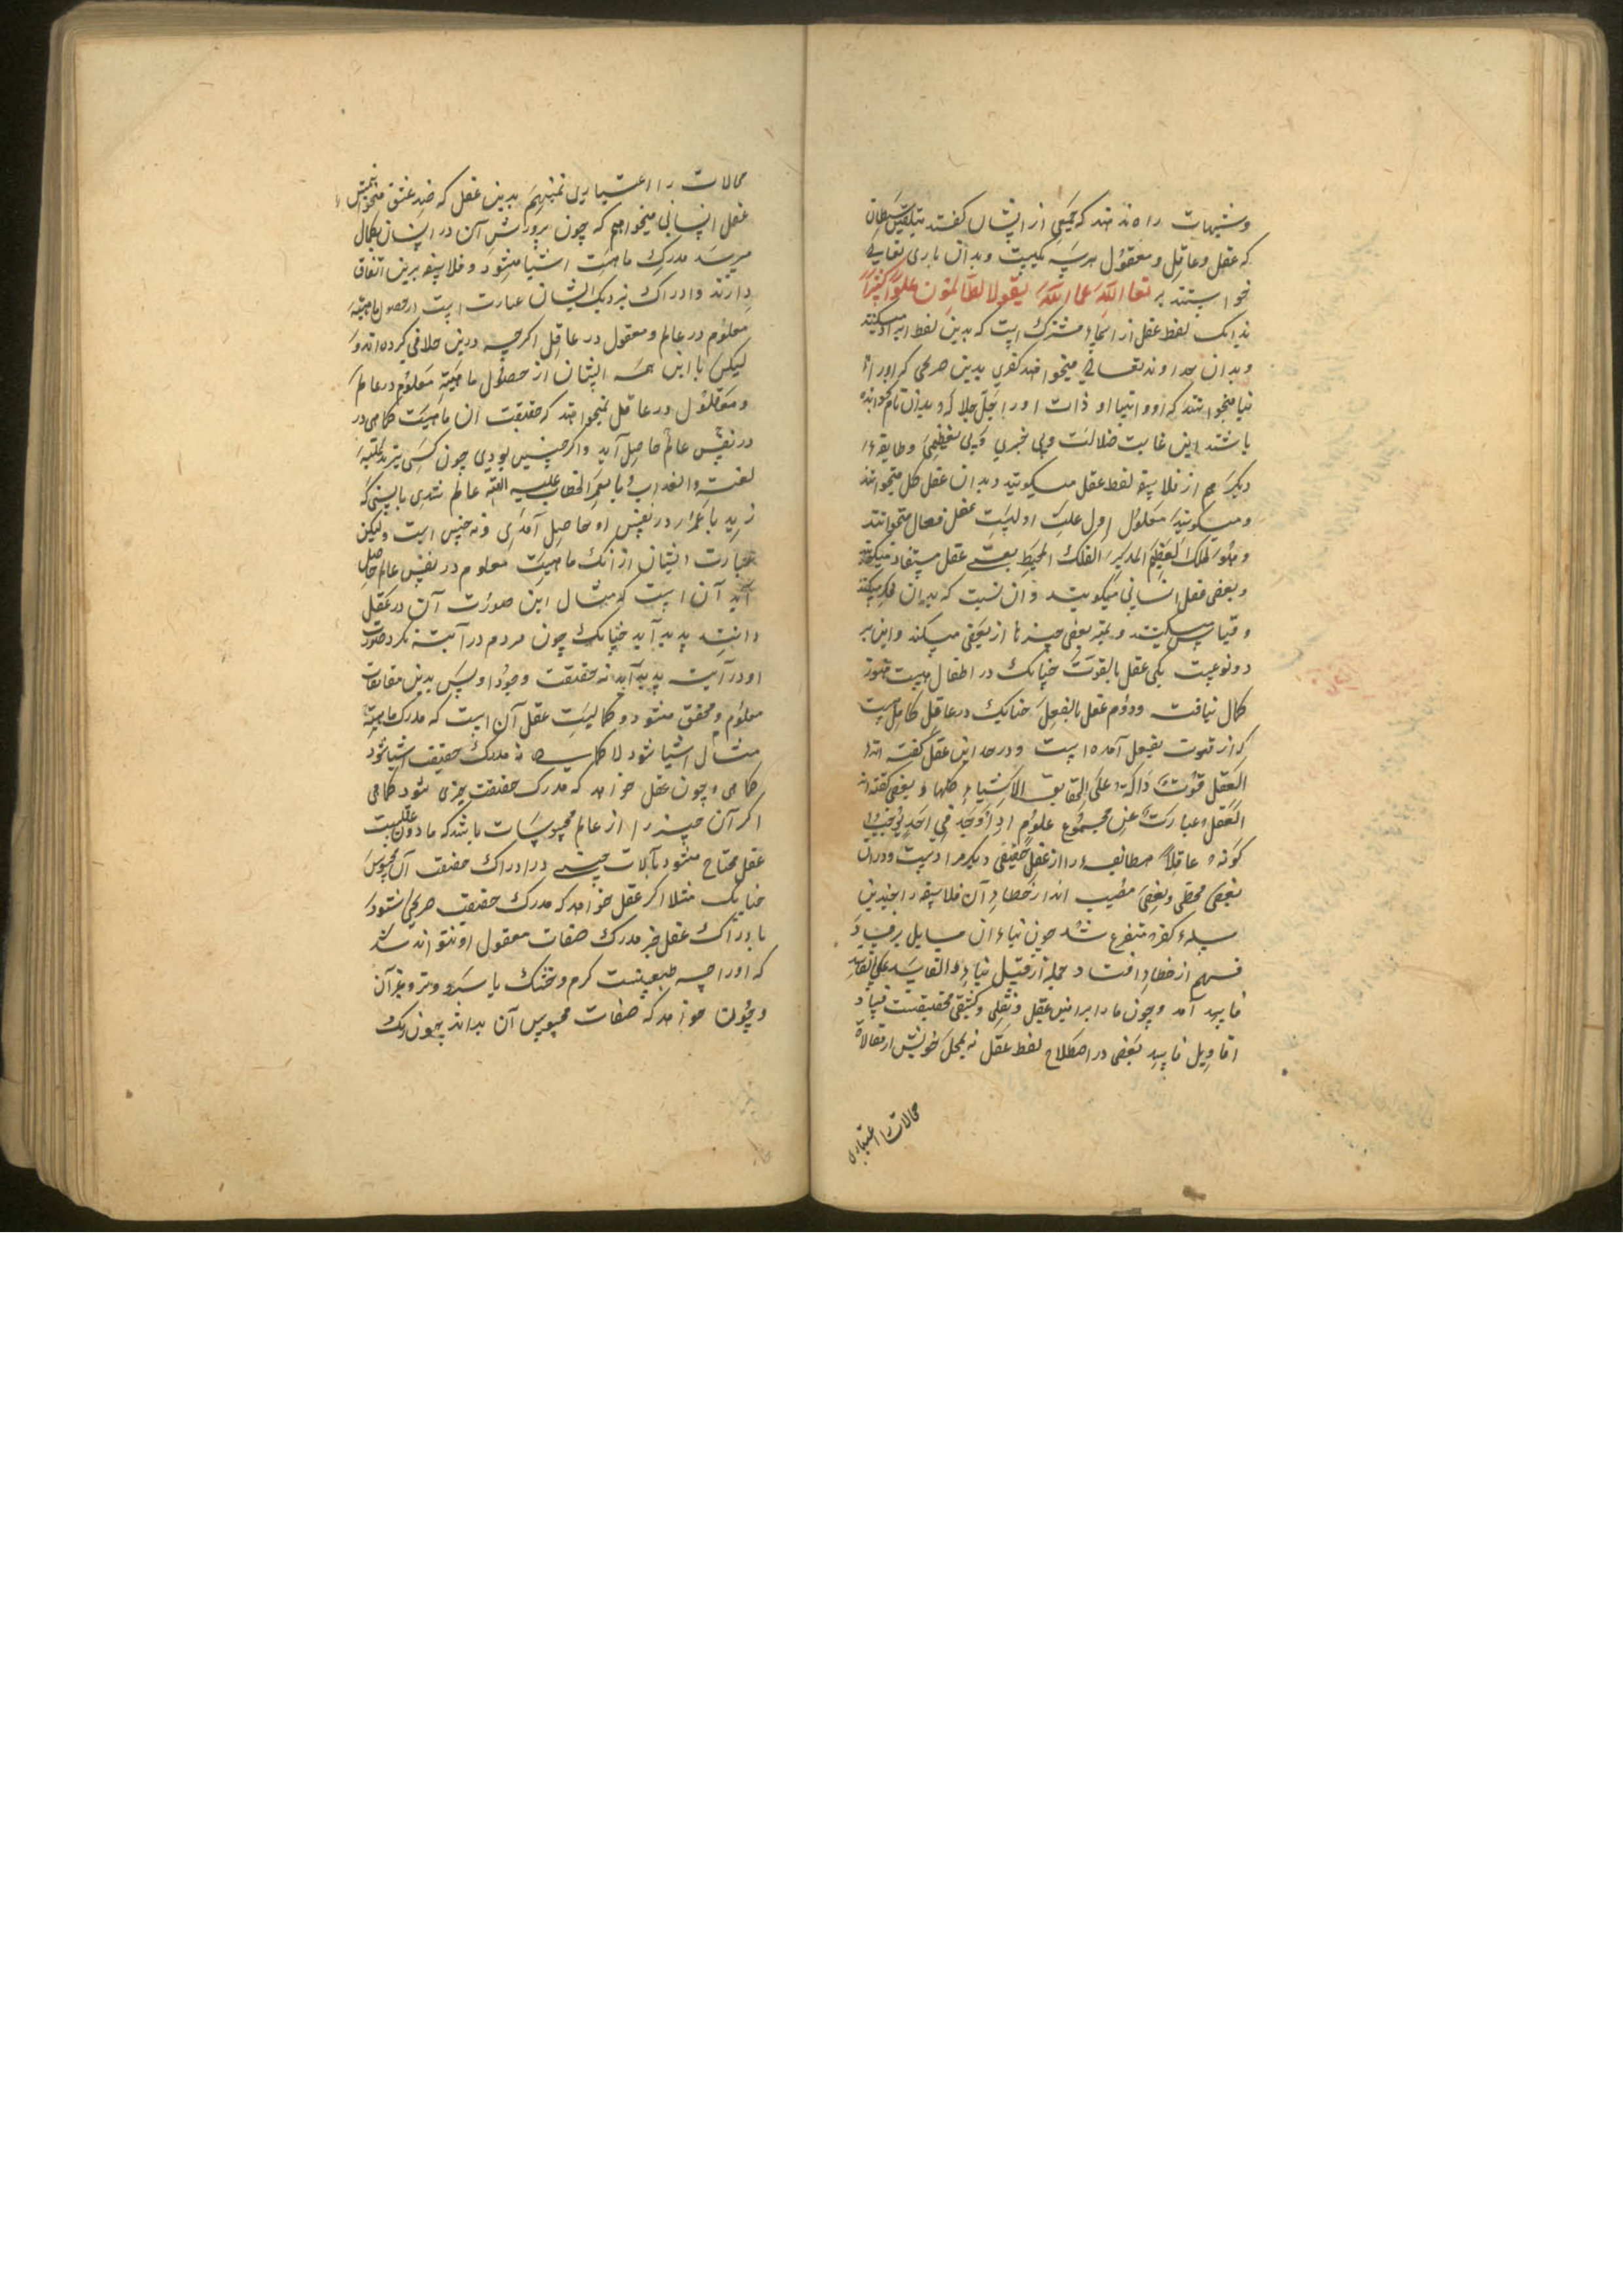 وشبهات راه ندهند که جمعی از ایشان گفتند بتلقین شیطان
که عقل و عاقل و معقول هرسه یکیست وبدان باری تعالی
خواستند بر تعالی الله عما یقول الظالمون علوا کبیرا
بدانک لفظ عقل از اسماء مشترک است که بدین لفظ ایراد میکنند
وبدان خداوند تعالی میخواهند کفری بدین صریحی که اورا
باشند این غایت ضلالت وبی خبری وبی تعظیمی وطایفهٔ
دیکر هم از فلاسفه لفظ عقل میکویند وبدان عقل کل میخواهند
ومیکویند معلول اول علت اولیست عقل فعال میخوانند
وهو الملک العظیم المدیر الفلک المحیط بعضی عقل مستفاد میکویند
وبعضی عقل انسانی میکویند وان نسبت که بدان فکر میکنند
وقیاس میکنند وتمیز بعضی چیزها از بعضی میکنند واین بر
دونوعست یکی عقل بالقوت چنانک در اطفال هست هنوز
کمال نیافت ودوم عقل بالفعل چنانک در عاقل کامل است
که از قوت بفعل آمده است ودر حد این عقل کفته اند
العقل قوت داکة علی الحقایق الاشیاء کلها وبعضی کفته اند
العقل عبارت عن مجموع علوم اذا وجد فی احد یوجب
کونه عاقلا هرطایفه را از عقل حقیقی دیکر مرادست ودران
بعضی مخطی وبعضی مصیب اند از خطاء آن فلاسفه را چندین
مسلهٔ کفر متفرع شد چون بناء آن مسایل بر فساد
فهم از خطا افتاد جمله از قبیل بناء الفاسد علی الفاسد
فاسد آمد وچون ما را براهین عقلی ونقلی وکشفی محقیقست فساد
اقاویل فاسد بعضی در اصطلاح لفظ عقل نه بمحل خویش از مقالات
محالات را اعتباری
محالات را اعتباری نمینهیم بدین عقل که ضد عشق میخوانیمش
عقل انسانی میخواهیم که چون پرورش آن در انسان بکمال
میرسد مدرک ماهیت اشیا میشود وفلاسفه برین اتفاق
دارند وادراک نزدیک ایشان عبارت است از حصول ماهیت
معلوم در عالم ومعقول در عاقل اکرچه درین خلافی کرده اند و
لیکن با این همه ایشان از حصول ماهیت معلوم در عالم
ومعقول در عاقل نمیخواهند که حقیقت آن ماهیت کماهی در
در نفس عالم حاصل آید واکر چنین بودی چون کسی
عالم شدی بایستی که
زید با عمرا در نفس او حاصل آمدی ونه چنین است ولیکن
عبارت ایشان از انک ماهیت معلوم در نفس عالم حاصل
آید آن است که مثال این صورت آن در عقل
داننده پدید آید چنانک چون مردم در آینه نکرد صورت
او در آینه پدید آید نه حقیقت وجود او پس بدین مقدمات
معلوم ومحقق میشود وکمالیت عقل آن است که مدرک ماهیت
مثال اشیا شود لا کماهی نه مدرک حقیقت اشیا شود
کماهی وچون عقل خواهد که مدرک حقیقت چیزی شود کماهی
اکر آن چیز را از عالم محسوسات باشد که مادون عقلیست
عقل محتاج میشود بآلات حسی در ادراک حقیقت آن محسوس
چنانک مثلا اکر عقل خواهد که مدرک حقیقت شود
بادراک عقل جز مدرک صفات معقول او نتواند شد
که اورا چه طبعیست کرم وخشک یا سرد وتر وغیر آن
وچون خواهد که صفات محسوس آن بداند چون رنک